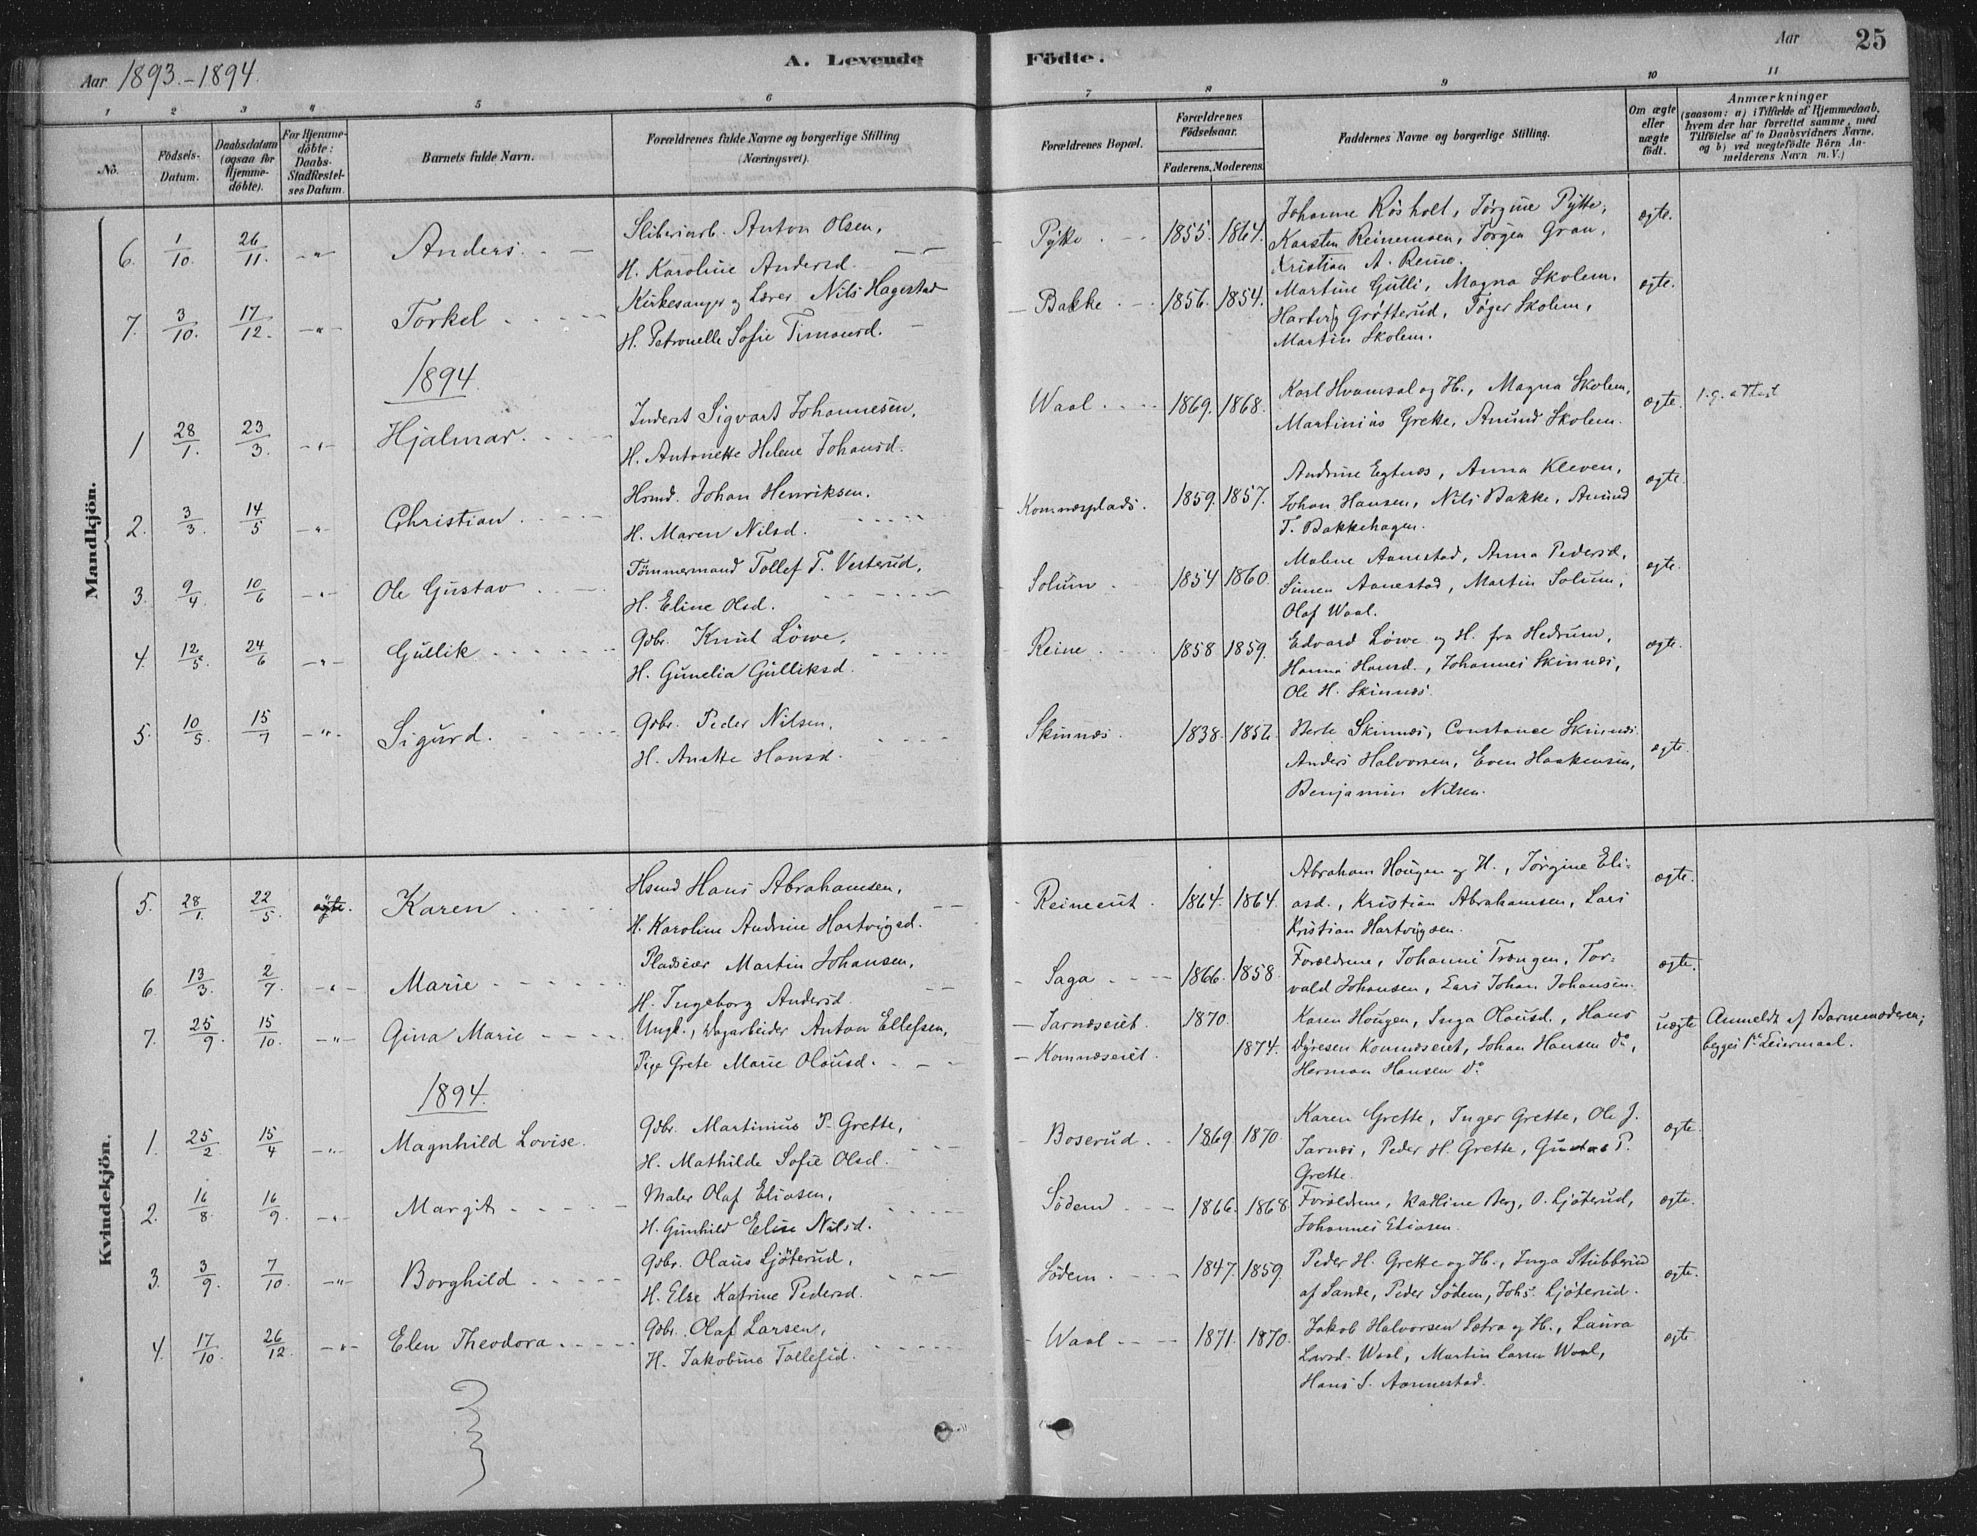 Aar 1893.-1894.
A. Levende
Födte.
Aar
25
1 2 3 4 5 6 7 8 9 10 11
No.
Födsels-
Datum.
Daabsdatum
(ogsaa for
Hjemme-
döbte).
For Hjemme-
döbte:
Daabs-
Stadfæstel-
ses Datum.
Barnets fulde Navn.
Forældrenes fulde Navne og borgerlige Stilling
(Næringsvei).
Forældrenes Bopæl.
Forældrenes
Födselsaar.
Faderens. Moderens.
Faddernes Navne og borgerlige Stilling.
Om ægte
eller
uægte
födt.
Anmærkninger
(saasom: a) i Tilfælde af Hjemmedaab,
hvem der har forrettet samme, med
Tilföielse af to Daabsvidners Navne,
og b) ved uægtefödte Börn An-
melderens Navn m. V.)
Mandkjön.
6. 1/10. 26/11. -"- Anders. Sliberiarb. Anton Olsen,
H. Karoline Andersd.
Pyke. 1855. 1864.
Johanne Rösholt, Jørgine Pytte,
Karsten Reinemoen, Jørgen Gran,
Kristian A. Reine.
ægte.
7. 3/10. 17/12. -"- Torkel Kirkesanger og Lærer Nils Hagestad
H. Petronelle Sofie Timansd.
Bakke 1856. 1854.
Martine Gulli, Magna Skolem,
Hartvig Grøtterud, Tøger Skolem,
Martin Skolem.
ægte.
1894.
1 28/1. 23/3. -"- Hjalmar. Inderst Sigvart Johannesen,
H. Antonette Helene Johansd.
Waal 1869. 1868.
Karl Hvamsal og H., Magna Skolem,
Martinius Grette, Amund Skolem.
ægte. 1. g. attest
2. 3/3. 14/5 -"- Christian. Hsmd. Johan Henriksen.
H. Maren Nilsd.
Komnæsplads. 1859. 1857.
Andrine Egtnæs, Anna Kleven,
Johan Hansen, Nils Bakke, Amund
T. Bakkehagen.
ægte.
3. 9/4. 10/6 -"- Ole Gustav Tömmermand Tollef T. Vesterud,
H. Eline Olsd.
Solum. 1854 1860.
Malene Aanestad, Anna Pedersd,
Simen Aanestad, Martin Solum,
Olaf Waal.
ægte.
4. 12/5. 24/6 -"- Gullik Gdbr. Knut Löwe,
H. Gunelia Gulliksd.
Reine 1858 1859.
Edvard Löwe og H. fra Hedrum,
Hanna Hansd., Johannes Skinnes,
Ole H. Skinnæs.
ægte.
5. 10/5. 15/7 -"- Sigurd. Gdbr. Peder Nilsen,
H. Anette Hansd.
Skinnæs. 1838. 1852.
Berte Skinnes, Constance Skinnæs
Anders Halvorsen, Even Haakensen,
Benjamin Nilsen.
ægte.
Kvindekjön.
5. 28/1. 22/5. Karen Hsmd Hans Abrahamsen,
H. Karoline Andrine Hartvigsd.
Reineeiet. 1864. 1864.
Abraham Hougen og H., Jørgine Eli-
asd., Kristian Abrahamsen, Lars
Kristian Hartvigsen.
ægte.
6. 13/3. 2/7. -"- Marie Pladseier Martin Johansen,
H. Ingeborg Andersd.
Saga 1866. 1858
Forældrene, Johanne Trangen, Tor-
vald Johansen, Lars Johan Johansen.
ægte.
7. 25/9. 15/10. -"- Gina Marie Ungk., Dagarbeider Anton Ellefsen,
Pige Grete Marie Olausd.
Jarnæseiet. 1870.
Komnæseiet. 1874.
Karen Hougen, Inga Olausd., Hans
Dyresen Komnæseiet, Johan Hansen do,
Herman Hansen do
uægte Anmeldt af Barnemoderen;
begges 1ste Leiermaal.
1894.
1. 25/2 15/4 -"- Magnhild Lovise. Gdbr. Martinius P. Grette,
H. Mathilde Sofie Olsd.
Boserud. 1869 1870.
Karen Grette, Inger Grette, Ole J.
Jarnæs, Peder H. Grette, Gustav P.
Grette.
ægte.
2. 16/8 16/9. -"- Margit Maler Olaf Eliasen,
H. Gunhild Elise Nilsd.
Södem 1866. 1868
Forældrene, Katrine Berg, O. Ljöterud,
Johannes Eliasen.
ægte.
3. 3/9. 7/10. -"- Borghild Gdbr. Olaus Ljöterud,
H. Else Katrine Pedersd.
Södem. 1847. 1859.
Peder H. Grette og H., Inga Stubberud
af Sande, Peder Södem, Johs. Ljöterud.
ægte.
4. 17/10. 26/12. -"- Elen Theodora. Gdbr. Olaf Larsen,
H. Jakobine Tollefsd.
Waal 1871. 1870.
Jakob Halvorsen Sætra og H., Laura
Larsd. Waal, Martin Larsen Waal,
Hans S. Aannestad.
ægte